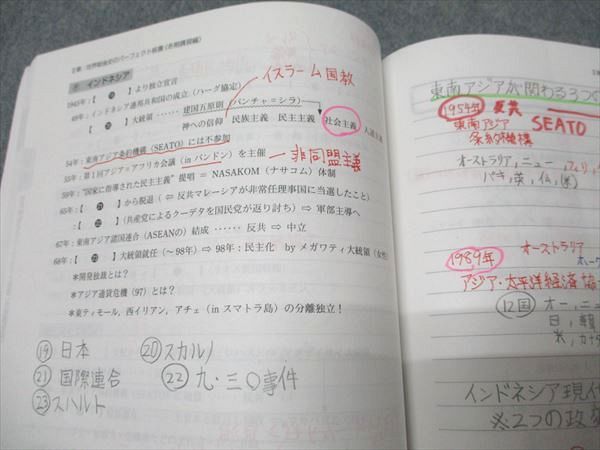 2章:世界戦後史のパーフェクト板書《冬期講習編》
⑦ インドネシア
イスラーム国教
1945年:【 ⑲ 】より独立宣言
49年:インドネシア連邦共和国の成立(ハーグ協定)
【 ⑳ 】大統領 …… 建国五原則(パンチャ=シラ)
神への信仰 民族主義 民主主義 社会主義 人道主義
54年:東南アジア条約機構(SEATO)には不参加
55年:第1回アジア=アフリカ会議(in バンドン)を主催 ー 非同盟主義
59年:"国家に指導された民主主義"提唱 = NASAKOM(ナサコム)体制
65年:【 ㉑ 】から脱退(⇐ 反共マレーシアが非常任理事国に当選したこと)
:【 ㉒ 】(共産党によるクーデタを国民党が返り討ち)⇒ 軍部主導へ
67年:東南アジア諸国連合(ASEAN)の結成 …… 反共 ⇒ 中立
68年:【 ㉓ 】大統領就任(~98年)⇒ 98年:民主化 by メガワティ大統領(女性)
*開発独裁とは?
*アジア通貨危機(97)とは?
*東ティモール、西イリアン、アチェ(in スマトラ島)の分離独立!
⑲ 日本 ⑳ スカルノ
㉑ 国際連合 ㉒ 九・三〇事件
㉓ スハルト
東南アジアが関わる3つの
1954年 反共
東南アジア SEATO
条約機構
オーストラリア, ニュー
パキ, 英, 仏, 米
1989年 オーストラリア
ホーク
アジア・太平洋経済協
12国 オー, ニュ
日, 韓
米, カナダ
インドネシア現代
※2つの政変